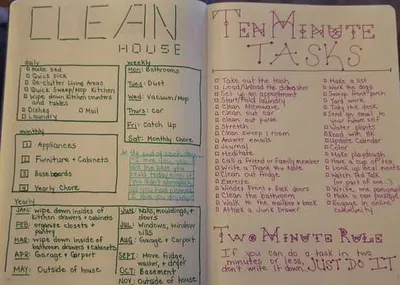 CLEAN
HOUSE
daily
Make bed
Quick pick
De-clutter Living Areas
Quick Sweep/Mop Kitchen
Wipe down Kitchen counters
and tables
Dishes
Mail
Laundry
weekly
Mon: Bathrooms
Tues: Dust
Wed: Vacuum/Mop
Thurs: car
Fri: Catch Up
Sat: Monthly Chore
monthly
1 Appliances
2 Furniture + Cabinets
3 Baseboards
4 Yearly Chore
At the end of each day
Yearly
JAN: wipe down inside of
kitchen drawers + cabinets
FEB: organize closets +
pantry
MAR: wipe down inside of
bathroom drawers + cabinets
APR: Garage + Carport
MAY: Outside of house
JUN: Walls, mouldings, +
doors
JUL: Windows, window
sills
AUG: Garage + Carport
SEPT: Move fridge,
washer, + dryer
OCT: Basement
NOV: Outside of house
TEN MINUTE
TASKS
Take out the trash
Load/Unload the dishwasher
Set up an appointment
Start/Fold laundry
Clean Microwave
Clean out car
Clean out purse
Stretch
Clean/sweep 1 room
Answer emails
Journal
Meditate
Call a friend or family member
Write a Thank You Note
Clean out fridge
Exercise
Windex Front + Back doors
Clean the Bathroom
Walk to the mailbox + back
Attack a Junk Drawer
Make a list
Walk the dogs
Sweep front porch
Yard work
Tidy the deck
Send an email to
your future self
Water plants
Read with HK
Update Calendar
Color
Make playdough
Have a cup of tea
Look up local meets
Watch Ted Talk
(or part of one...)
Write one paragraph
Make a tea packing
Engage in online
community
TWO MINUTE RULE
If you can do a task in two
minutes or less, JUST DO IT
don't write it down.